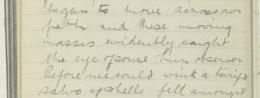 began to move across our
path and these moving
masses evidently caught
the eye of some Hun observer
Before we could wink a terrific
salvo of shells fell amongst